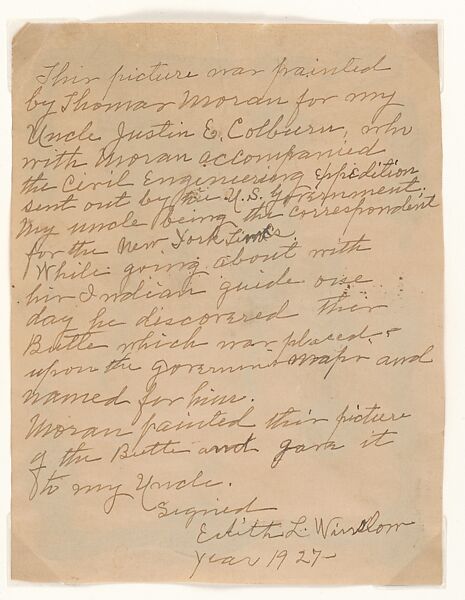 This picture was painted
by Thomas Moran for my
Uncle Justin E. Colburn, who
with Moran accompanied
the Civil Engineering Expedition
sent out by the U.S. Government.
My uncle being the correspondent
for the New York Times
While going about with
his Indian guide one
day he discovered this
Butte which was placed
upon the government maps and
named for him.
Moran painted this picture
of the Butte and gave it
to my Uncle.
Signed
Edith L. Winslow
Year 1927-